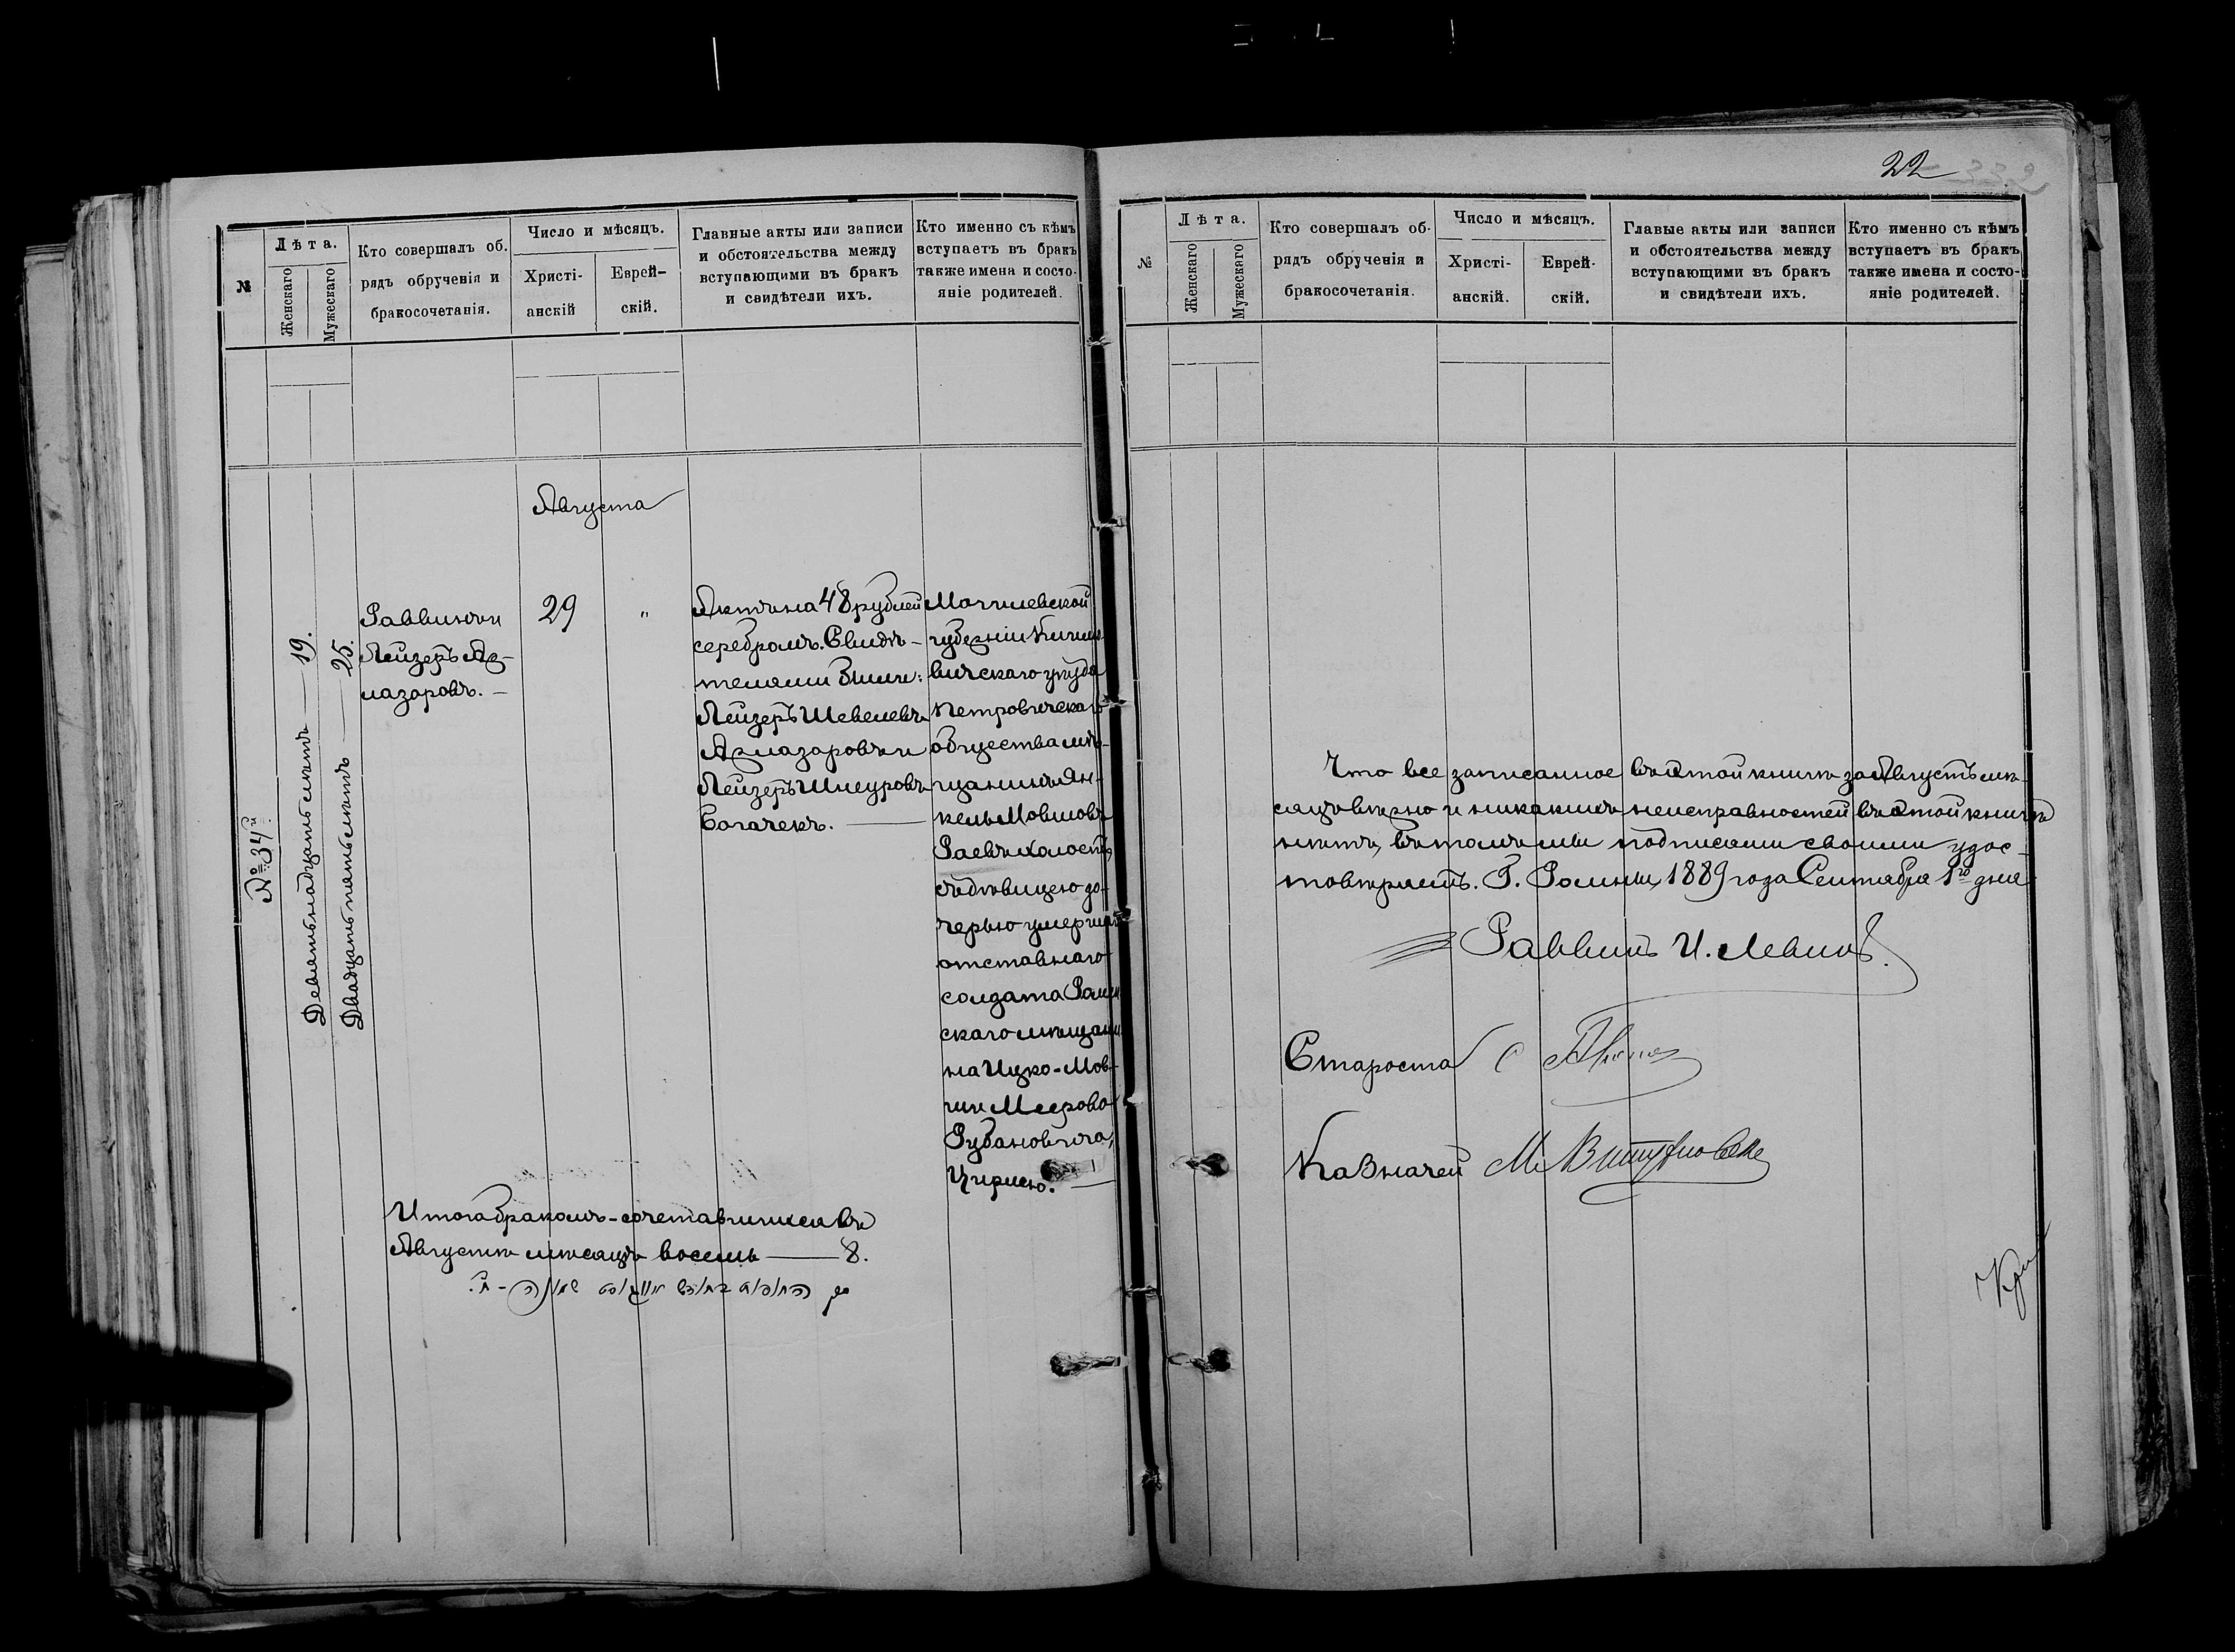 №
Лѣта.
Женскаго
Мужескаго
Кто совершалъ об.
рядъ обрученія и
бракосочетанія.
Число и мѣсяцъ.
Христі-
анскій
Еврей-
скій.
Главные акты или записи
и обстоятельства между
вступающими въ бракъ
и свидѣтели ихъ.
Кто именно съ кѣмъ
вступаетъ въ бракъ
также имена и состо-
яніе родителей.
Августа
№ 34й
Девятьнадцать лѣтъ — 19.
Двадцать пять лѣтъ — 25.
Раввинъ
Лейзеръ
лазаровъ. —
29
"
Актъ на 48 рублей
серебромъ. Свидѣ-
телями были:
Лейзеръ Шевелевъ
Лейзеръ Шнеуровъ
Богачекъ. —
Могилевской
губерніи Климо-
вичскаго уѣзда
Петровичскаго
общества мѣ-
щанинъ Ян-
кель Мовшовъ
Раевъ холостъ,
съ дѣвицею до-
черью умершаго
отставнаго
солдата Ромен
скаго мѣщани
на Ицко-Мов-
ши Меерова
Рубановича,
Цирлею. —
Итого бракомъ-сочетавшихся въ
Августѣ мѣсяцѣ восемь — 8.
22
№
Лѣта.
Женскаго
Мужескаго
Кто совершалъ об-
рядъ обрученія и
бракосочетанія.
Число и мѣсяцъ.
Христі-
анскій.
Еврей-
скій.
Главые акты или записи
и обстоятельства между
вступающими въ бракъ
и свидѣтели ихъ.
Кто именно съ кѣмъ
вступаетъ въ бракъ
также имена и состо-
яніе родителей.
Что все записанное въ этой книгѣ за Августъ мѣ-
сяцъ вѣрно и никакихъ неисправностей въ этой книгѣ
нѣтъ, въ томъ мы подписями своими удос-
товѣряемъ. Г. Ромны, 1889 года Сентября 1го дня
Раввинъ И. Левинъ.
Староста
Казначей М.